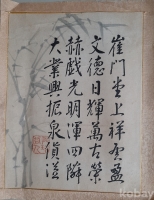 崔门堂上祥雲盈
文德日輝萬古榮
赫戲光明渾四隣
大業興振泉貨溢
kobay